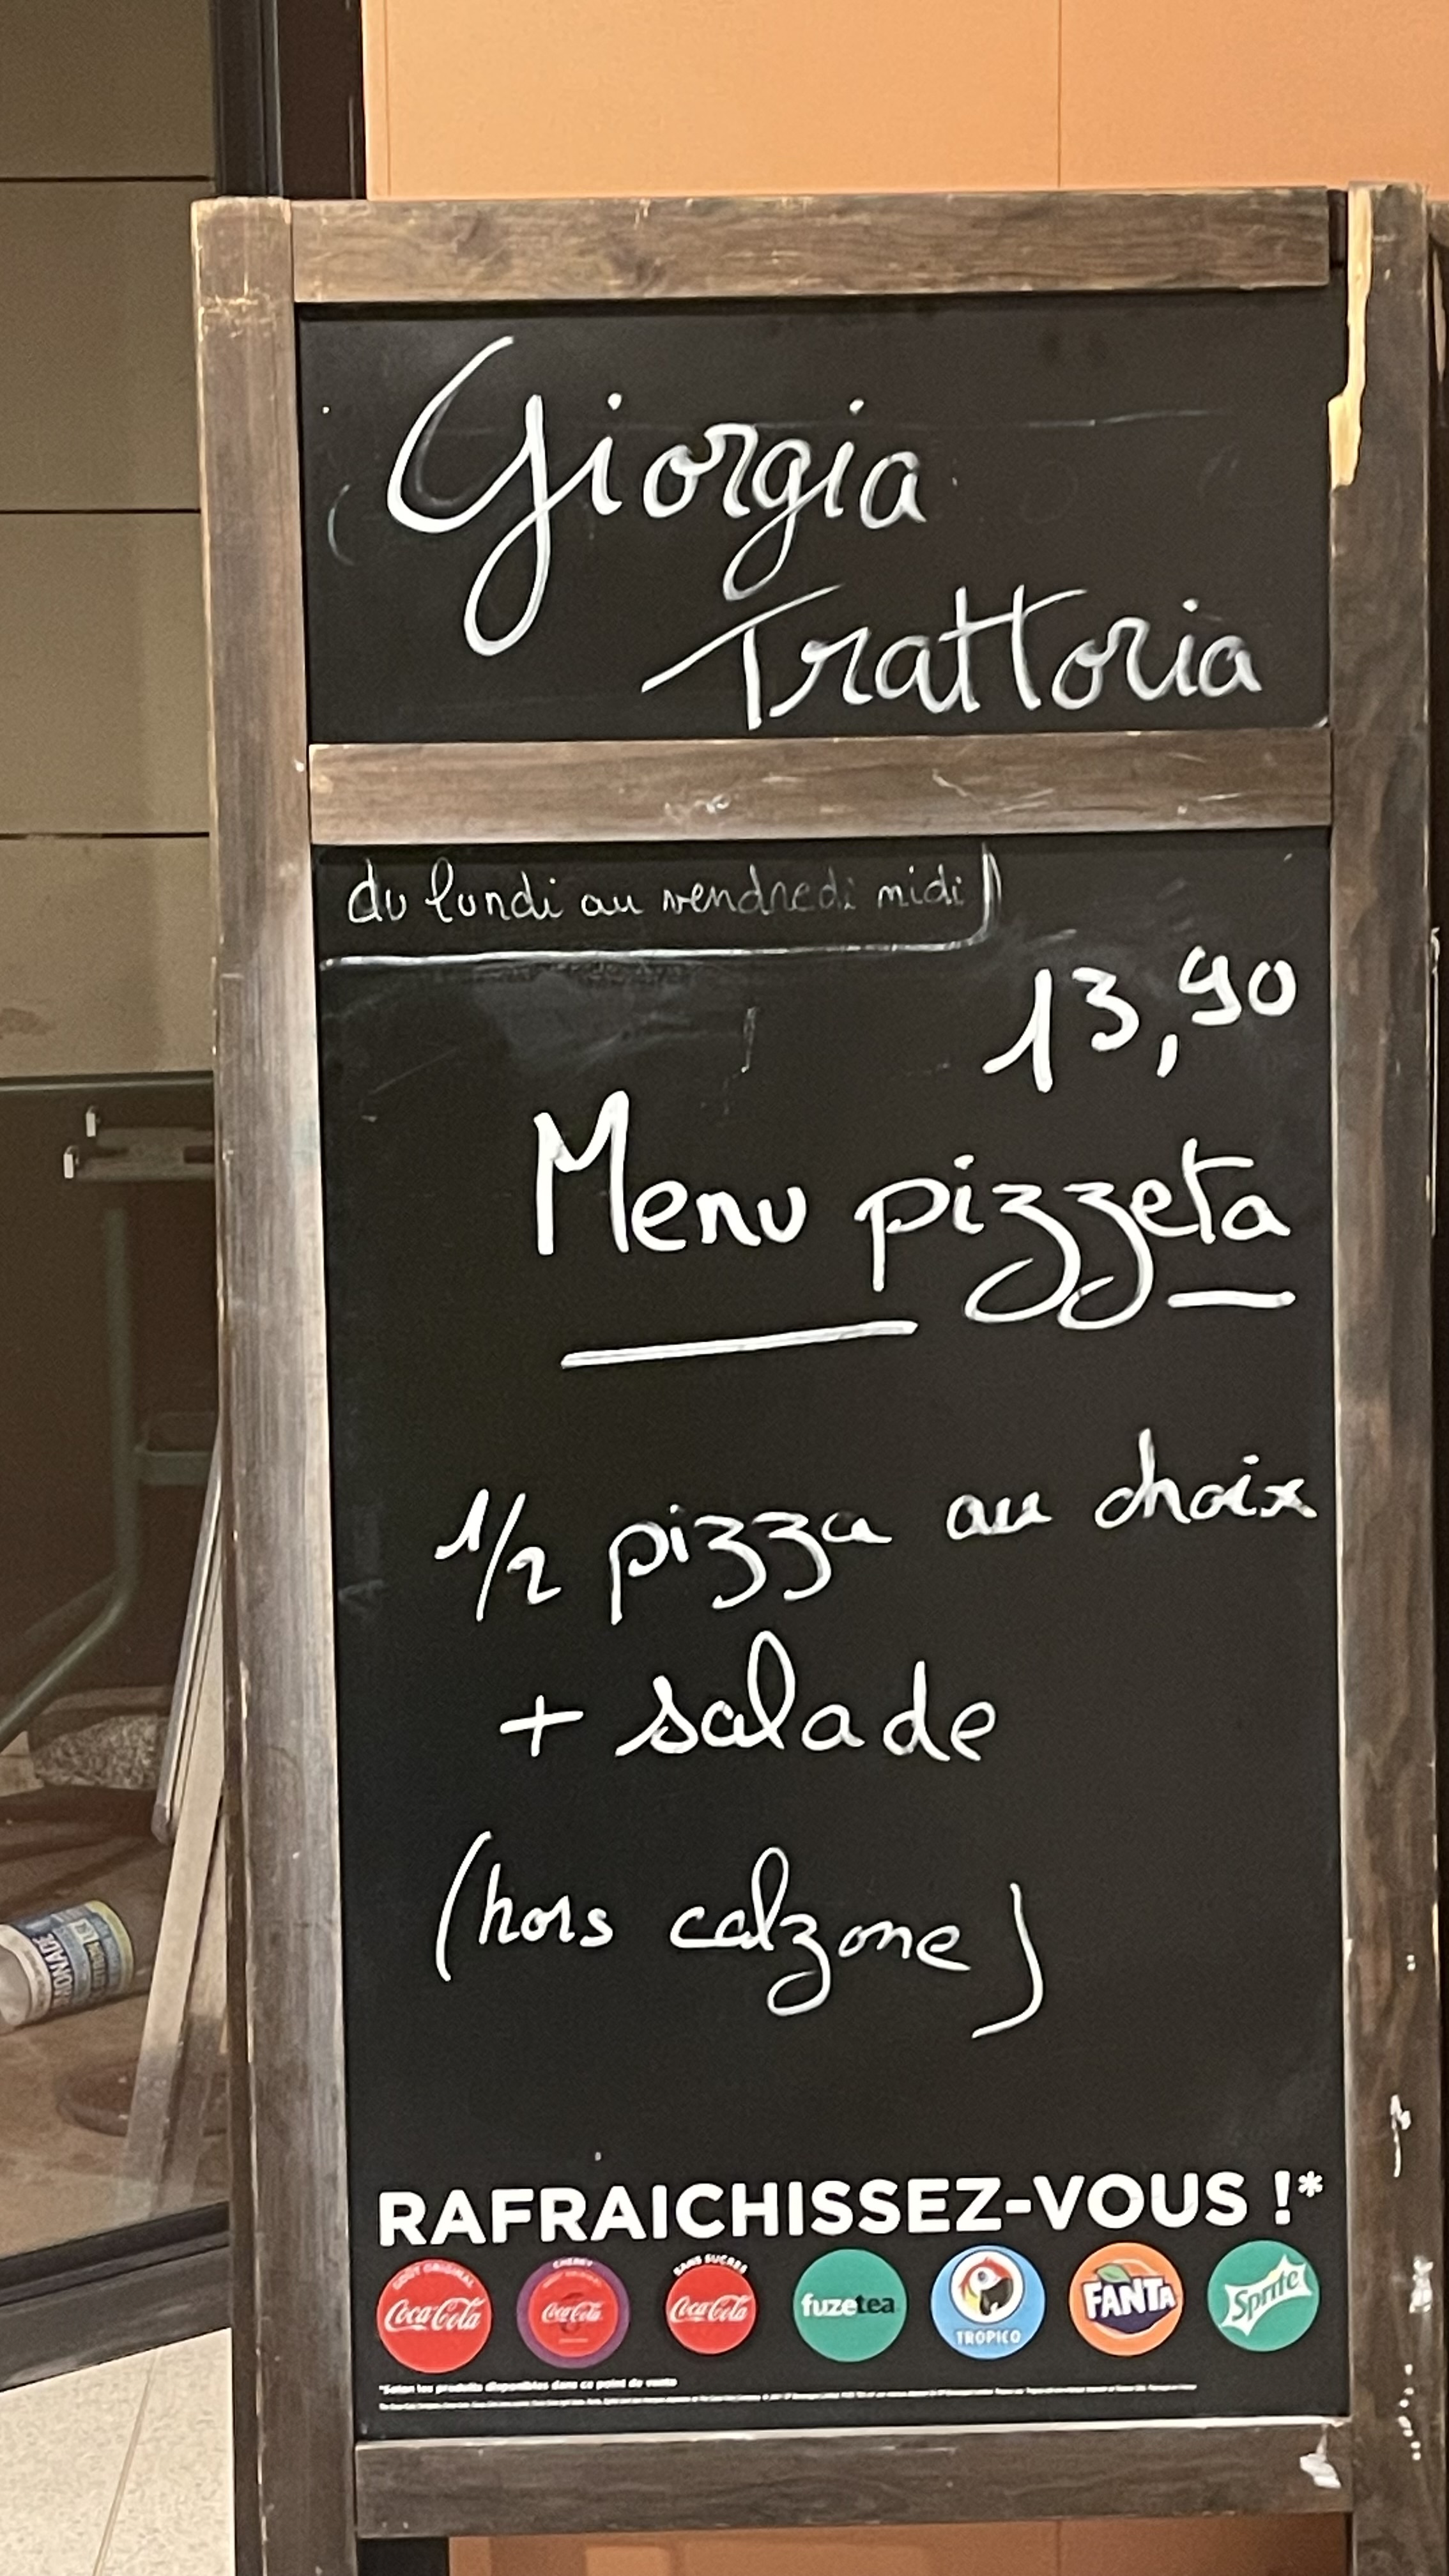 Giorgia
Trattoria
du lundi au vendredi midi
13,90
Menu pizzeta
1/2 pizza au choix
+ salade
(hors calzone)
RAFRAICHISSEZ-VOUS !*
GOÛT ORIGINAL
Coca-Cola
CHERRY
Coca-Cola
SANS SUCRES
Coca-Cola
fuzetea
TROPICO
FANTA
Sprite
*Selon les produits disponibles dans ce point de vente